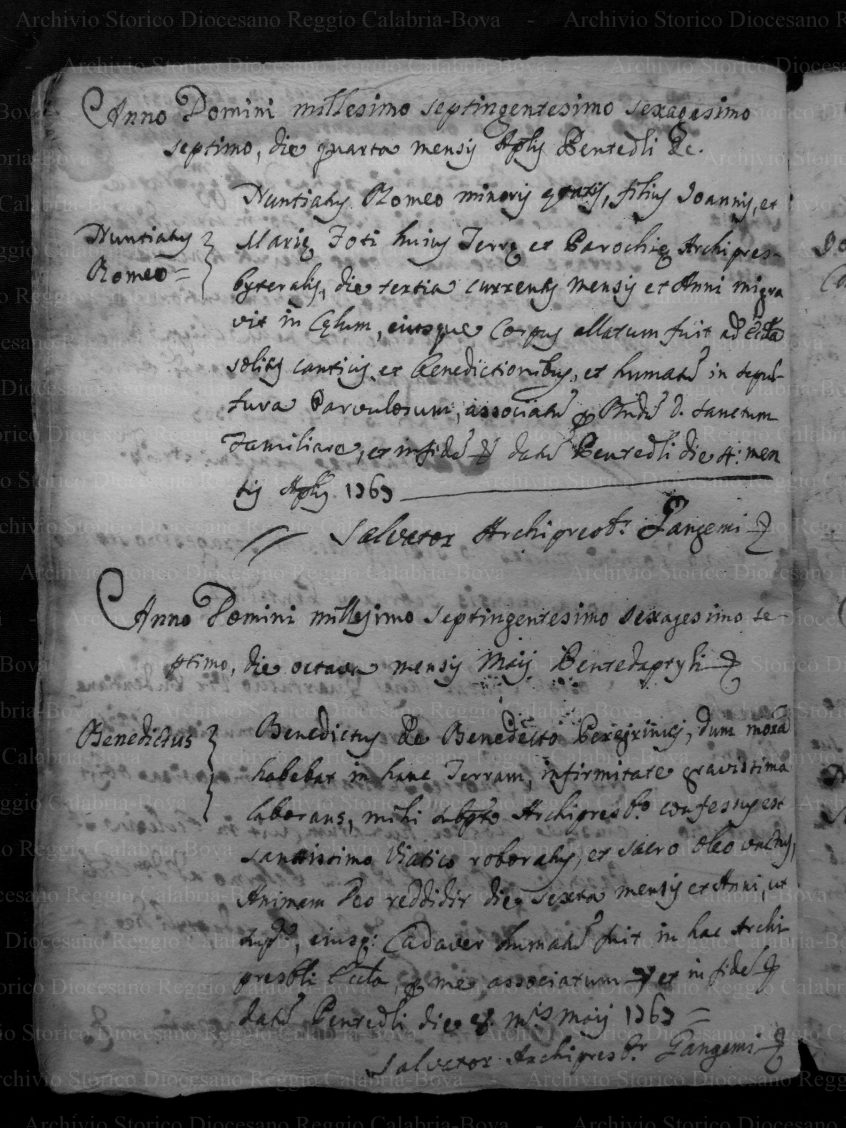 Anno Domini millesimo septingentesimo sexagesimo
septimo, die quarta mensis Aplis Pentedli &c.
Nuntiatus Romeo minoris ętatis, filius Joannis, et
Nuntiatus
Romeo =
Marię Foti huius Terrę et Parochię Archipres-
byteralis, die tertia currentis mensis et Anni migra
vit in Cęlum, eiusque Corpus allatum fuit ad Eccla
solitis canticis et benedictionibus, et humatu in sepul-
tura Parvulorum, associatu
Familiare, et in fide datu Pentedli die 4: men
sis Aplis 1767
Salvator Archipresbr. Pangemi
Anno Domini millesimo septingentesimo sexagesimo se-
ptimo, die octava mensis Maij Pentedaptyli
Benedictus
Benedictus de Benedicto Peregrinus, dum mora
habebat in hanc Terram, infirmitate gravissima
laborans, mihi Archipresbo confessus est
santissimo Viatico roboratus, et sacro oleo unctus,
Animam Deo reddidit die sexta mensis et Anni, ut
supa, eiusq: Cadaver humatu fuit in hac Archi
presbli Eccla, me associatum et in fide
datu Pentedli die 8. mis maij 1767 =
Salvator Archipresbr Pangemi
Archivio Storico Diocesano Reggio Calabria-Bova - Archivio Storico Diocesano Reggio